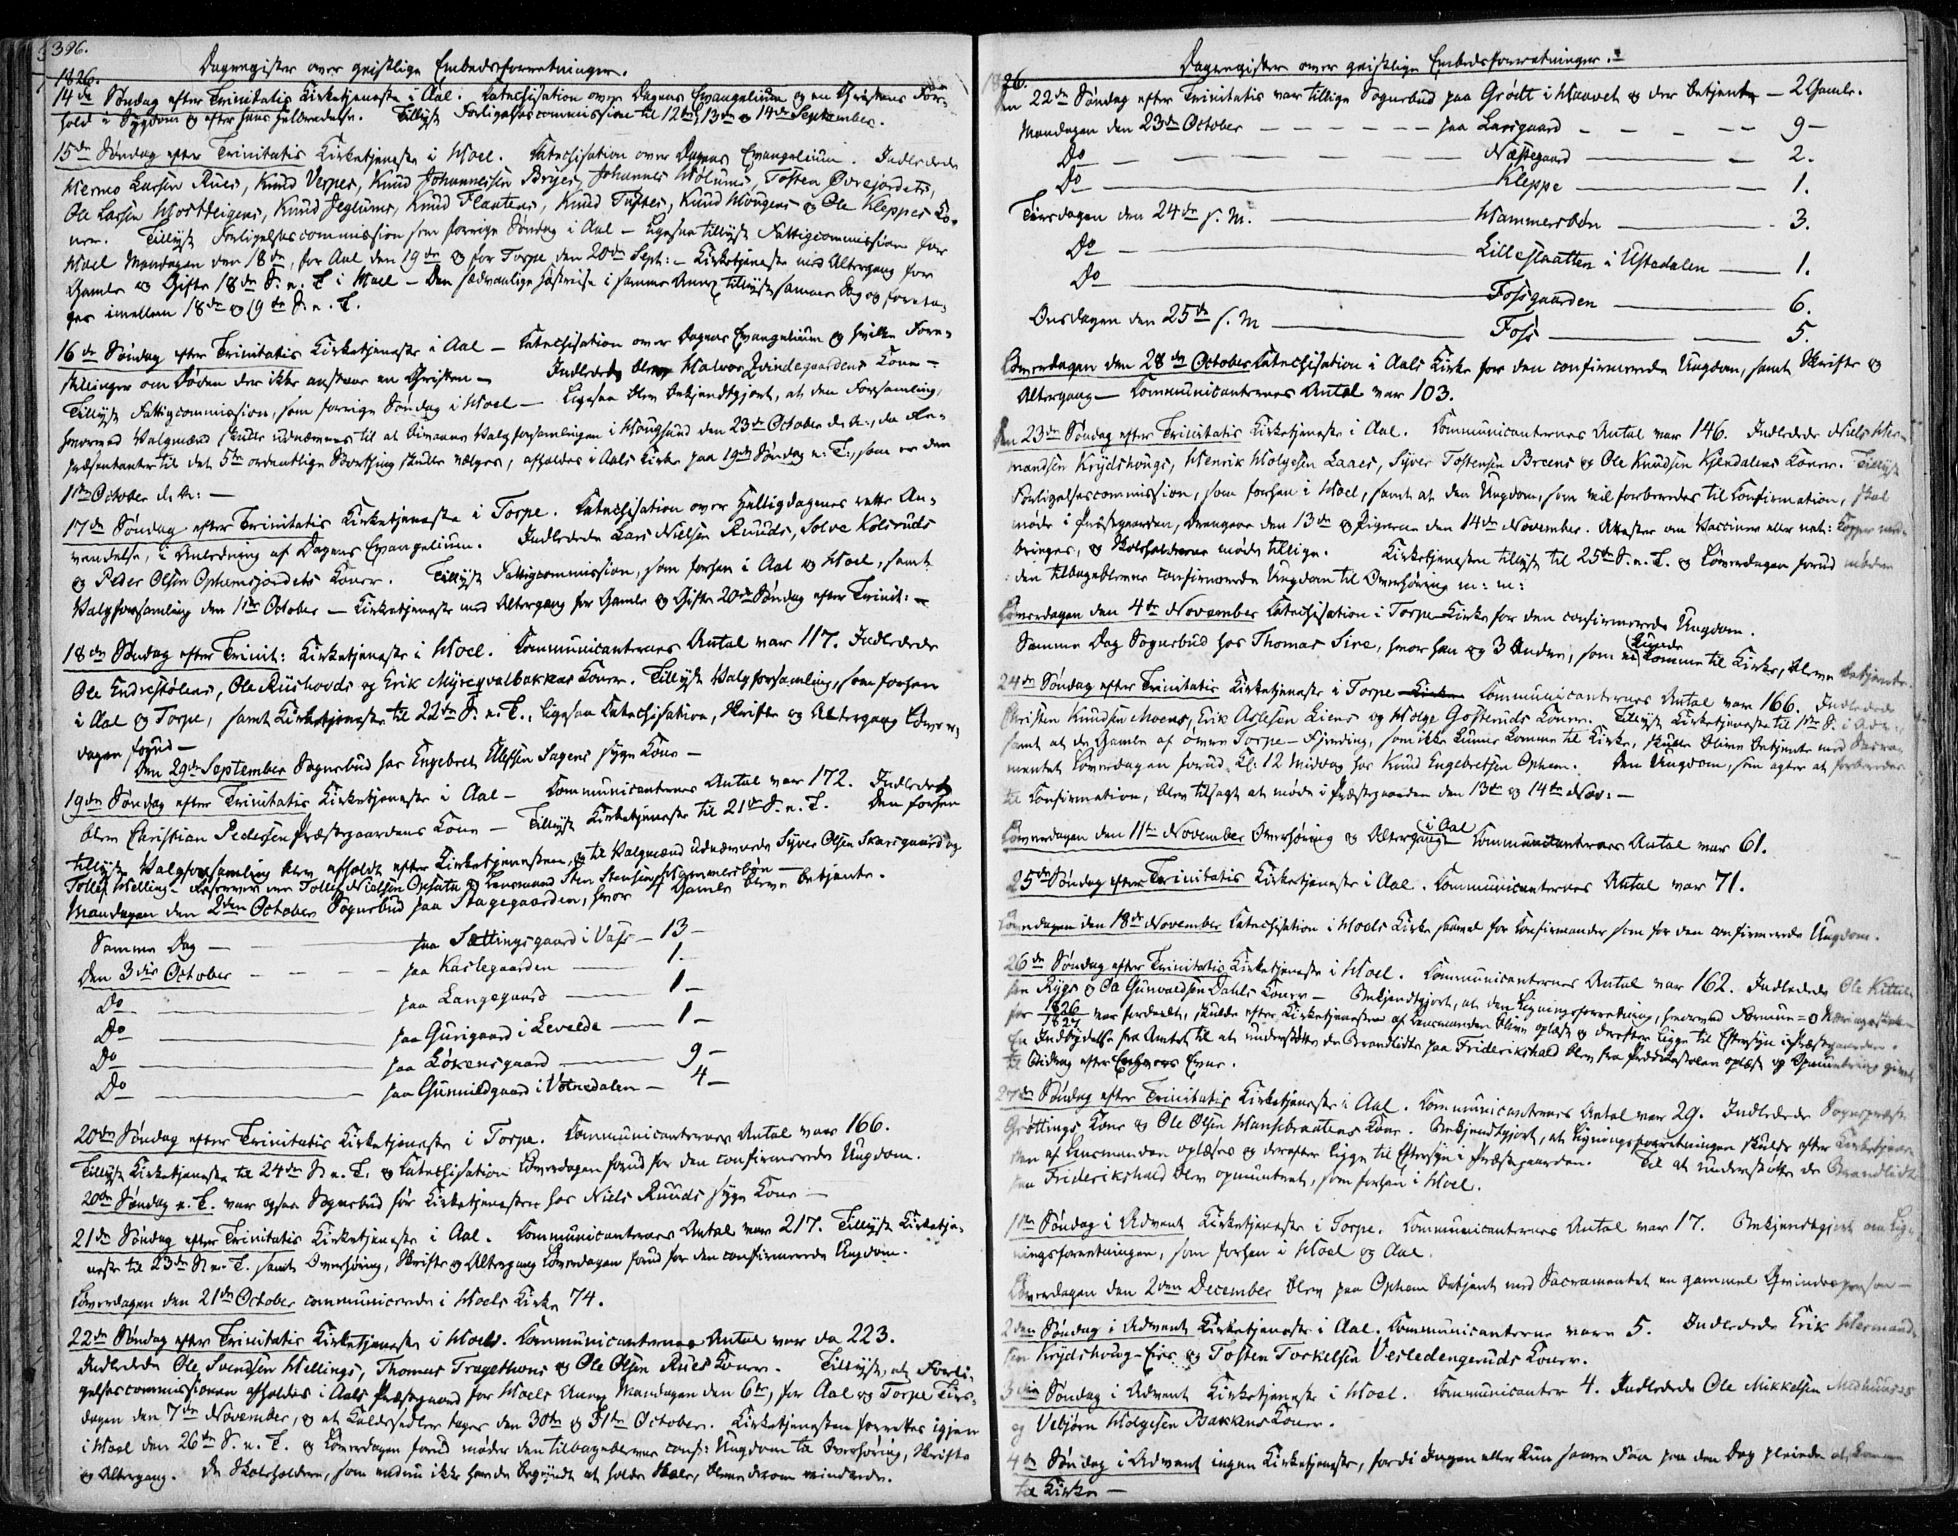 396.
Dagregister over geistlige Embedsforretninger.
1826.
14de Søndag efter Trinitatis Kirketjeneste i Aal. Catechisation over Dagens Evangelium og en Christens For-
hold i Sygdom og efter hans Helbredelse. Tillyst Forligelsescommission til 12te, 13de og 14de September.
15de Søndag efter Trinitatis Kirketjeneste i Hoel. Catechisation over Dagens Evangelium. Indledede
Hermo Larsen Rues, Knud Verpes, Knud Johannesen Bryes, Johannes Hølums, Tosten Øvrejordets,
Ole Larsen Hofsteigens, Knud Jeglums, Knud Flaatens, Knud Tuftes, Knud Hougens og Ole Kleppes Ko-
ner. Tillyst Forligelsescommission som forrige Søndag i Aal - Ligesaa tillyst Fattigcommission for
Hoel Mandagen den 18de, for Aal den 19de og for Torpe den 20de Sept: - Kirketjeneste med Altergang for
Gamle og Gifte 18de S. e. T. i Hoel - Den sædvanlige Høstreise i samme Annex tillyst samme Dag og foreta-
ges imellem 18de og 19de S. e. T.
16de Søndag efter Trinitatis Kirketjeneste i Aal - Catechisation over Dagens Evangelium og hvilke Fore-
stillinger om Døden der ikke anstaaer en Christen - Indledet blev Halvor Qvindegaardens Kone -
Tillyst Fattigcommission, som forrige Søndag i Hoel - Ligesaa blev bekjendtgjort, at den Forsamling,
hvorved Valgmænd skulle udnævnes til at bivaane Valgforsamlingen i Hougsund den 23de October d. A., da Re-
præsentanter til det 5te ordentlige Storthing skulle vælges, afholdes i Aals Kirke paa 19de Søndag e. T., som er den
1ste October d. A: -
17de Søndag efter Trinitatis Kirketjeneste i Torpe. Catechisation over Helligdagenes rette An-
vendelse, i Anledning af Dagens Evangelium. Indledede Lars Nielsen Ruuds, Solve Kolsruds
og Peder Olsen Ophemsjordets Koner. Tillyst Fattigcommission, som forhen i Aal og Hoel, samt
Valgforsamling den 1ste October - Kirketjeneste med Altergang for Gamle og Gifte 20de Søndag efter Trinit: -
18de Søndag efter Trinit: Kirketjeneste i Hoel. Communicanternes Antal var 117. Indledede
Ole Endrestølens, Ole Riishovds og Erik Myreqvalbakkens Koner. Tillyst Valgforsamling, som forhen
i Aal og Torpe, samt Kirketjeneste til 22de S. e. T., ligesaa Catechisation, Skrifte og Altergang Løver-
dagen forud -
Den 29de September Sognebud hos Engebret Ellefsen Sagens syge Kone -
19de Søndag efter Trinitatis Kirketjeneste i Aal - Communicanternes Antal var 172. Indledet
blev Christian Pedersen Præstegaardens Kone - Tillyst Kirketjeneste til 21de S. e. T. Den forhen
tillyste Valgforsamling blev afholdt efter Kirketjenesten, og til Valgmænd udnævnede Syver Olsen Skarsgaard og
Tollef Helling - Reserver ere Tollef Nielsen Opsata og Lensmand Sten Stensen Hammersbøn -
Mandagen den 2den October Sognebud paa Stagegaarden, hvor 4 Gamle bleve betjente.
Samme Dag - paa Sættingsgaard i Vats - 13 -
Den 3die October - - - - paa Karlegaarden - 1. -
Do - paa Langegaard - 1 -
Do - paa Gurigaard i Levelde - 1 -
Do - paa Løkensgaard - 9 -
Do - paa Gunnildgaard i Votnedalen - 4 -
20de Søndag efter Trinitatis Kirketjeneste i Torpe. Communicanternes Antal var 166.
Tillyst Kirketjeneste til 24de S. e. T. og Catechisation Løverdagen forud for den confirmerede Ungdom.
20de Søndag e. T. var ogsaa Sognebud før Kirketjenesten hos Niels Ruuds syge Kone -
21de Søndag efter Trinitatis Kirketjeneste i Aal. Communicanternes Antal var 217. Tillyst Kirketje-
neste til 23de S. e. T. samt Overhøring, Skrifte og Altergang Løverdagen forud for den confirmerede Ungdom.
Løverdagen den 21de October communicerede i Hoels Kirke 74.
22de Søndag efter Trinitatis Kirketjeneste i Hoel. Communicanternes Antal var da 223.
Indledede Ole Svendsen Hellings, Thomas Tragethons og Ole Olsen Rues Koner. Tillyst, at Forli-
gelsescommissionen afholdes i Aals Præstegaard for Hoels Annex Mandagen den 6te, for Aal og Torpe Tirs-
dagen den 7de November, og at Kaldesedler tages den 30te og 31te October. Kirketjenesten forrettes igjen
i Hoel den 26de S. e. T. og Løverdagen forud møder den tilbageblevne conf: Ungdom til Overhøring, Skrifte
og Altergang. De Skoleholdere, som endnu ikke havde begyndt at holde Skole, bleve derom mindede.
Dagregister over geistlige Embedsforretninger.
1826.
Den 22de Søndag efter Trinitatis var tillige Sognebud paa Grødt i Haavet og der betjente - 2 Gamle.
Mandagen den 23de October - - - - paa Larsgaard - - - - 9 -
Do - Næstegaard - 2.
Do - Kleppe - 1.
Tirsdagen den 24de s. M. - Hammersbøn - 3.
Do - Lilleslaatten i Ustedalen - 1.
Do - Fossgaarden - 6.
Onsdagen den 25de s. M - Foss - 5.
Løverdagen den 28de October Catechisation i Aals Kirke for den confirmerede Ungdom, samt Skrifte og
Altergang - Communicanternes Antal var 103.
Den 23de Søndag efter Trinitatis Kirketjeneste i Aal. Communicanternes Antal var 146. Indledede Niels Her-
mandsen Krydshougs, Henrik Holgesen Laaes, Syver Tostensen Breens og Ole Knudsen Kjendalens Koner. Tillyst
Forligelsescommission, som forhen i Hoel, samt at den Ungdom, som vil forberedes til Confirmation, skal
møde i Præstegaarden, Drengene den 13de og Pigerne den 14de November. Attester om Vaccine eller nat: Kopper med-
bringes, og Skoleholderne møde tillige. Kirketjenesten tillyst til 25de S. e. T. og Løverdagen forud møder
den tilbageblevne confirmerede Ungdom til Overhøring m: m:
Løverdagen den 4de November Catechisation i Torpe-Kirke for den confirmerede Ungdom.
Samme Dag Sognebud hos Thomas Sire, hvor han og 3 Andre, som ei kunde komme til Kirke, bleve betjente.
24de Søndag efter Trinitatis Kirketjeneste i Torpe Communicanternes Antal var 166. Indledede
Christen Knudsen Moens, Erik Aslesen Liens og Holge Gosteruds Koner. Tillyst Kirketjeneste til 1ste S. i Adv:,
samt at de Gamle af øvre Torpe-Fjerding, som ikke kunne komme til Kirke, skulle blive betjente med Sacra-
mentet Løverdagen forud Kl: 12 Middag hos Knud Engebretsen Ophem. Den Ungdom, som agter at forberedes
til Confirmation, blev tilsagt at møde i Præstegaarden den 13de og 14de Nov: -
Løverdagen den 11te November Overhøring og Altergang i Aal Communicanternes Antal var 61.
25de Søndag efter Trinitatis Kirketjeneste i Aal. Communicanternes Antal var 71.
Løverdagen den 18de November Catechisation i Hoels Kirke saavel for Confirmander som for den confirmerede Ungdom.
26de Søndag efter Trinitatis Kirketjeneste i Hoel. Communicanternes Antal var 162. Indledede Ole Kittel-
sen Rygs og Ole Gunvaldsen Dahls Koner - Bekjendtgjort, at den Ligningsforretning, hvorved Formue- og Næringsskat
for 1826/1827 var fordeelt, skulde efter Kirketjenesten af Lensmanden blive oplæst og derefter ligge til Eftersyn i Præstegaarden.
En Indbydelse fra Amtet til at understøtte de Brandlidte paa Friderikshald blev fra Prædikestolen oplæst og Opmuntring givet
til Bidrag efter Enhvers Evne.
27de Søndag efter Trinitatis Kirketjeneste i Aal. Communicanternes Antal var 29. Indledede Sognepræst
Grøttings Kone og Ole Olsen Hansebraatens Kone. Bekjendtgjort, at Ligningsforretningen skulde efter Kirketjene-
sten af Lensmanden oplæses og derefter ligge til Eftersyn i Præstegaarden. Til at understøtte de Brandlidte
paa Friderikshald blev opmuntret, som forhen i Hoel.
1ste Søndag i Advent Kirketjeneste i Torpe. Communicanternes Antal var 17. Bekjendtgjort om Lig-
ningsforretningen, som forhen i Hoel og Aal.
Løverdagen den 2den December blev paa Ophem betjent med Sacramentet en gammel Qvindesperson -
2den Søndag i Advent Kirketjeneste i Aal. Communicanterne vare 5. Indledede Erik Hermand-
sen Krydshoug-Eies og Tosten Torkelsen Vesledengeruds Koner.
3die Søndag i Advent Kirketjeneste i Hoel. Communicanter 4. Indledede Ole Mikkelsen Medhuuses
og Vebjørn Holgesen Bakkens Koner.
4de Søndag i Advent ingen Kirketjeneste, fordi Ingen eller kun saare Faa paa den Dag pleiede at komme
til Kirke -